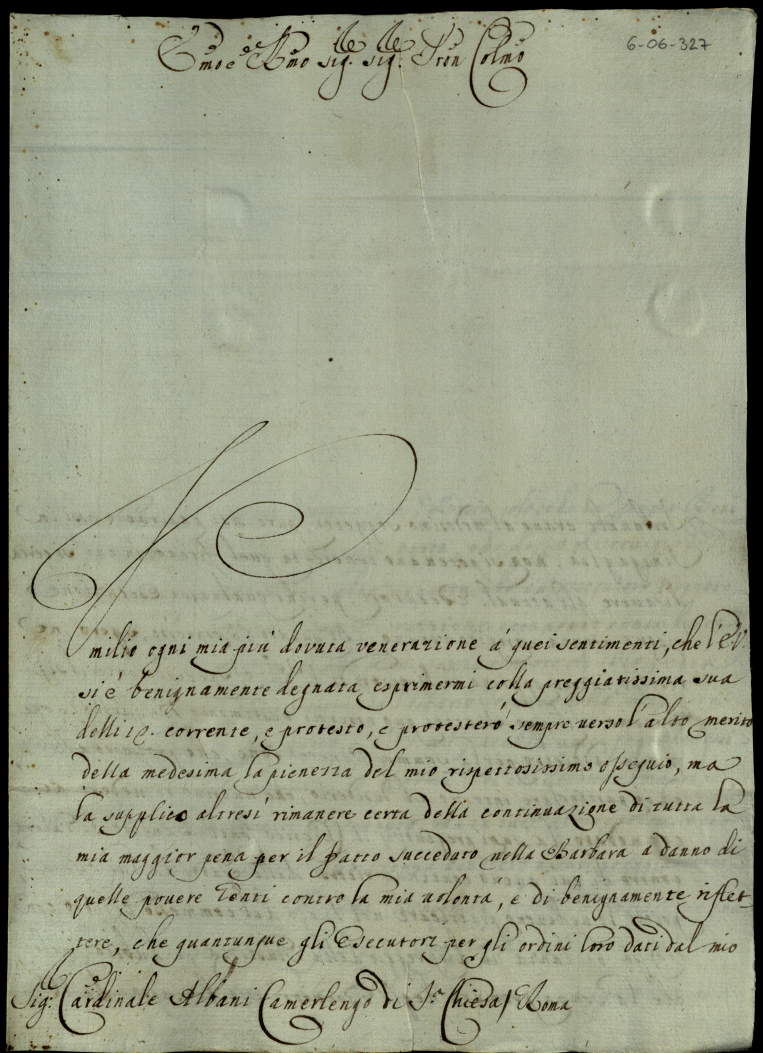 6-06-327
Emo e Rmo Sig. Sig. Pron Colmo
Umilio ogni mia più dovuta venerazione à quei sentimenti, che l'E.V.
si è benignamente degnata esprimermi colla preggiatissima sua
delli corrente, e protesto, e protesterò sempre verso l'alto merito
della medesima la pienezza del mio rispettosissimo ossequio, ma
la supplico altresì rimanere certa della continuazione di tutta la
mia maggior pena per il fatto succeduto nella Barbara a danno di
quelle povere Genti contro la mia volontà, e di benignamente riflet-
tere, che quantunque gli Esecutori per gli ordini loro dati dal mio
Sig: Cardinale Albani Camerlengo di S. Chiesa / Roma